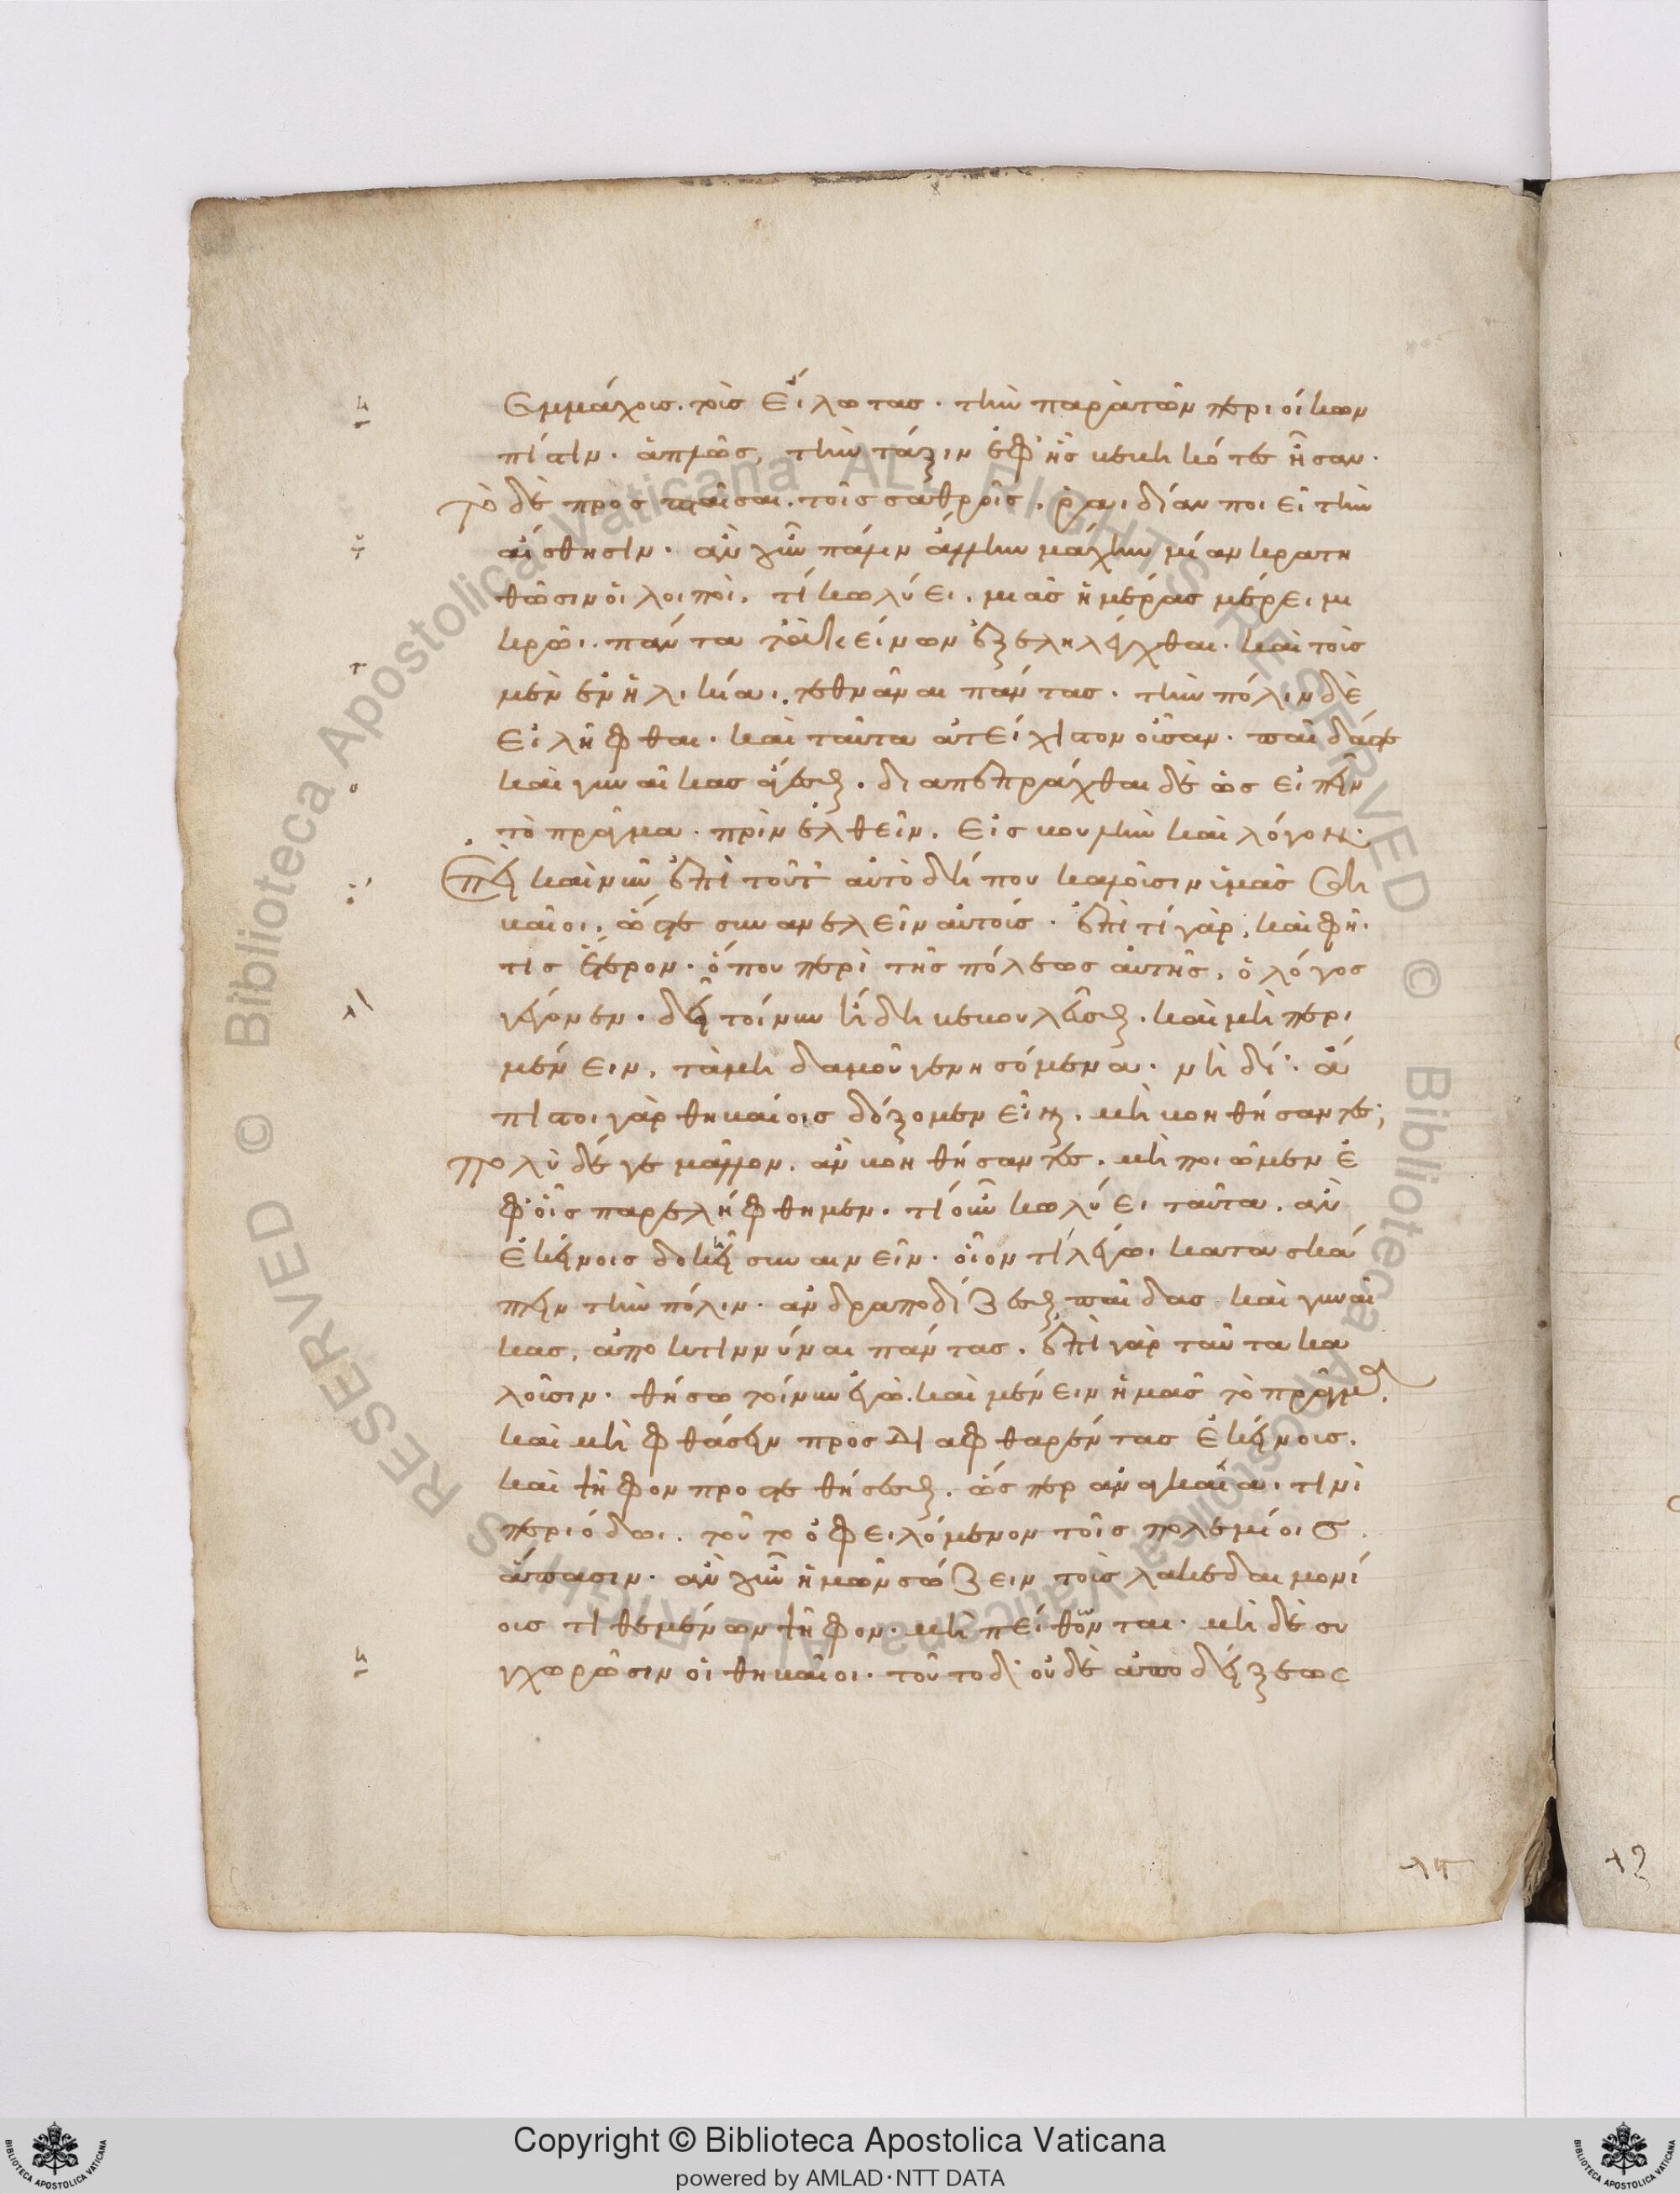 ξυμμάχους. τοὺς εἵλωτας. τὴν παρ' αὐτῶν περιοίκων
πίστιν. ἁπλῶς, τὴν τάξιν ἐφ' ἧς κεκινηκότες ἦσαν.
τὸ δὲ προσπταῖσαι. τοῖς σαθροῖς. ῥαιδίαν ποιεῖ τὴν
αἴσθησιν. ἂν γοῦν πάλιν ἄλλην μάχην μίαν κρατη
θῶσιν οἱ λοιποὶ. τί κωλύει. μιᾶς ἡμέρας μέρει μι
κρῶι. πάντα τἀκείνων ἐξεληλέγχθαι. καὶ τοὺς
μὲν ἐν ἡλικίαι. τεθνάναι πάντας. τὴν πόλιν δὲ
εἰλῆφθαι. καὶ ταῦτα ἀτείχιστον οὖσαν. παῖδάς τε
καὶ γυναῖκας ἄγεσθαι. διαπεπράχθαι δὲ ὡς εἰπεῖν
τὸ πρᾶγμα. πρὶν ἐλθεῖν. εἰς βουλὴν καὶ λόγους.
ἐπεὶ καὶ νῦν ἐπὶ τοῦτ' αὐτὸ δή που καλοῦσιν ὑμᾶς θη
βαῖοι. ὥστε συνανελεῖν αὐτούς. ἐπὶ τί γὰρ, καὶ φή.
τις ἕτερον. ὅπου περὶ τῆς πόλεως αὐτῆς. ὁ λόγος
γέγονεν. δεῖ τοίνυν ἤδη βεβουλεῦσθαι. καὶ μὴ περι
μένειν. τὰ μὴ δαμοῦ γενησόμενα. νὴ δί'. ἄ
πιστοι γὰρ θηβαίοις δόξομεν εἶναι. μὴ βοηθήσαντες;
πολὺ δέ γε μᾶλλον. ἂν βοηθήσαντες. μὴ ποιῶμεν ἐ
φ' οἷς παρελήφθημεν. τί οὖν κωλύει ταῦτα. ἂν
ἐκείνοις δοκῆ συναινεῖν. οἷον τί λέγω. κατασκά
πτειν τὴν πόλιν. ἀνδραποδίζεσθαι παῖδας καὶ γυναῖ
κας. ἀποκτιννύναι πάντας. ἐπὶ γὰρ ταῦτα κα
λοῦσιν. θήσω τοίνυν ἐγὼ. καὶ μένειν ἡμᾶς τὸ πρᾶγμα.
καὶ μὴ φθάσειν προσδιαφθαρέντας ἐκείνοις.
καὶ ψῆφον προστεθήσεσθαι. ὥσπερ ἀναγκαίαι. τινὶ
περιόδωι. τοῦτο ὀφειλόμενον τοῖς πολεμίοις
ἅπασιν. ἂν γοῦν ἡμῶν σώζειν τοὺς λακεδαιμονί
ους τιθεμένων ψῆφον. μὴ πείθωνται. μὴ δὲ συ
γχωρῶσιν οἱ θηβαῖοι. τοῦτο δ' οὐδὲ ἀποδείξεως
Copyright © Biblioteca Apostolica Vaticana
powered by AMLAD·NTT DATA